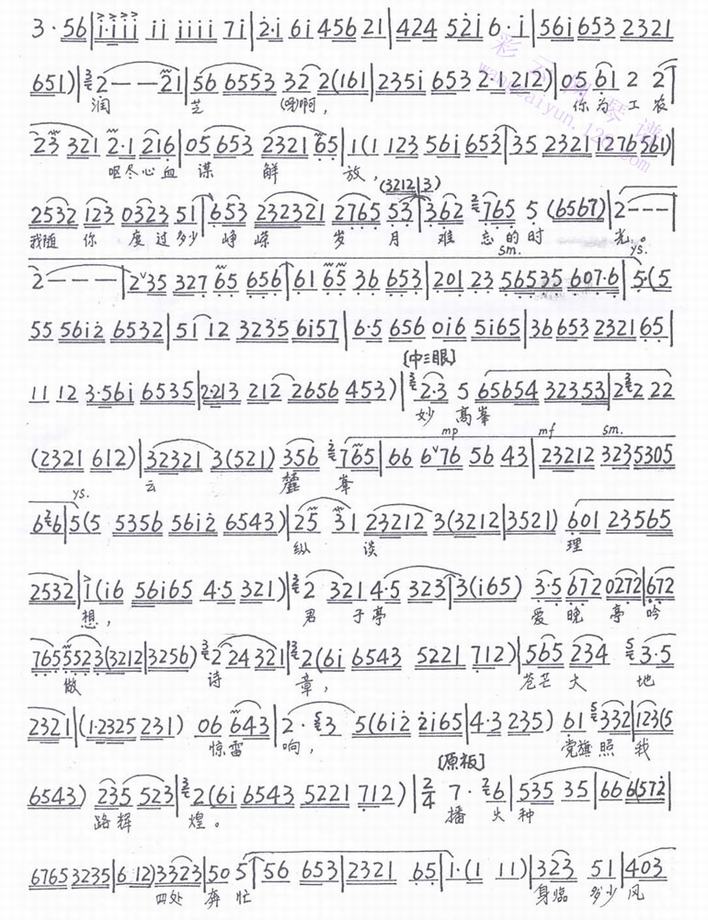 3·56|i·iii ii iiii 7i|2·i 6i 456 21|424 52i 6·i|56i 653 2321
651)|2——21|56 6553 32 2(161|235i 653 2·1 212)|05 61 2 2
润 芝 (哟啊, 你为工农
23 321 2·1 216|05 653 2321 65|1(1 123 56i 653|35 2321 1276 561)
呕尽心血 谋 解 放,
(3212|3)
2532 123 0323 51|653 232321 2765 53|362 765 5 (6567)|2———|
我随 你 度过多少 峥嵘 岁 月 难 忘的时 光。
sm. ys.
2———|2 35 327 65 656|61 65 36 653|201 23 56535 607·6|5(5
55 56i2 6532|51 12 3235 6i57|6·5 656 0i6 5i65|36 653 2321 65|
[中三眼]
11 12 3·56i 6535|2·213 212 2656 453)|2·3 5 65654 32353|2 2 22
妙 高峯
mp mf sm.
(2321 612)|32321 3(521) 356 765|66 6 76 56 43|23212 3235305
云 麓 峯
ys.
6 6|5(5 5356 56i2 6543)|25 31 23212 3(3212|3521) 601 23565
纵 谈 理
2532|i(i6 56i65 4·5 321)|2 321 4·5 323|3(i65) 3·5 672 0272|672
想, 君 子亭 爱 晚 亭 吟
765 5523(3212|3256) 2 24321|2(6i 6543 5221 712)|565 234 3·5
傲 诗 章, 苍茫 大 地
2321|(1·2325 231) 06 643|2· 3 5(6i2 2i65|4·3 235) 61 332|123(5
惊雷 响, 党旗 照 我
[原板]
6543) 235 523|2(6i 6543 5221 712)|2/4 7· 6|535 35|66 6(572|
路辉 煌。 播 火 种
6765 3235|6 12)3323|50 5|56 653|2321 65|1·(1 11)|323 51|403
四处 奔 忙 身临 多少 风